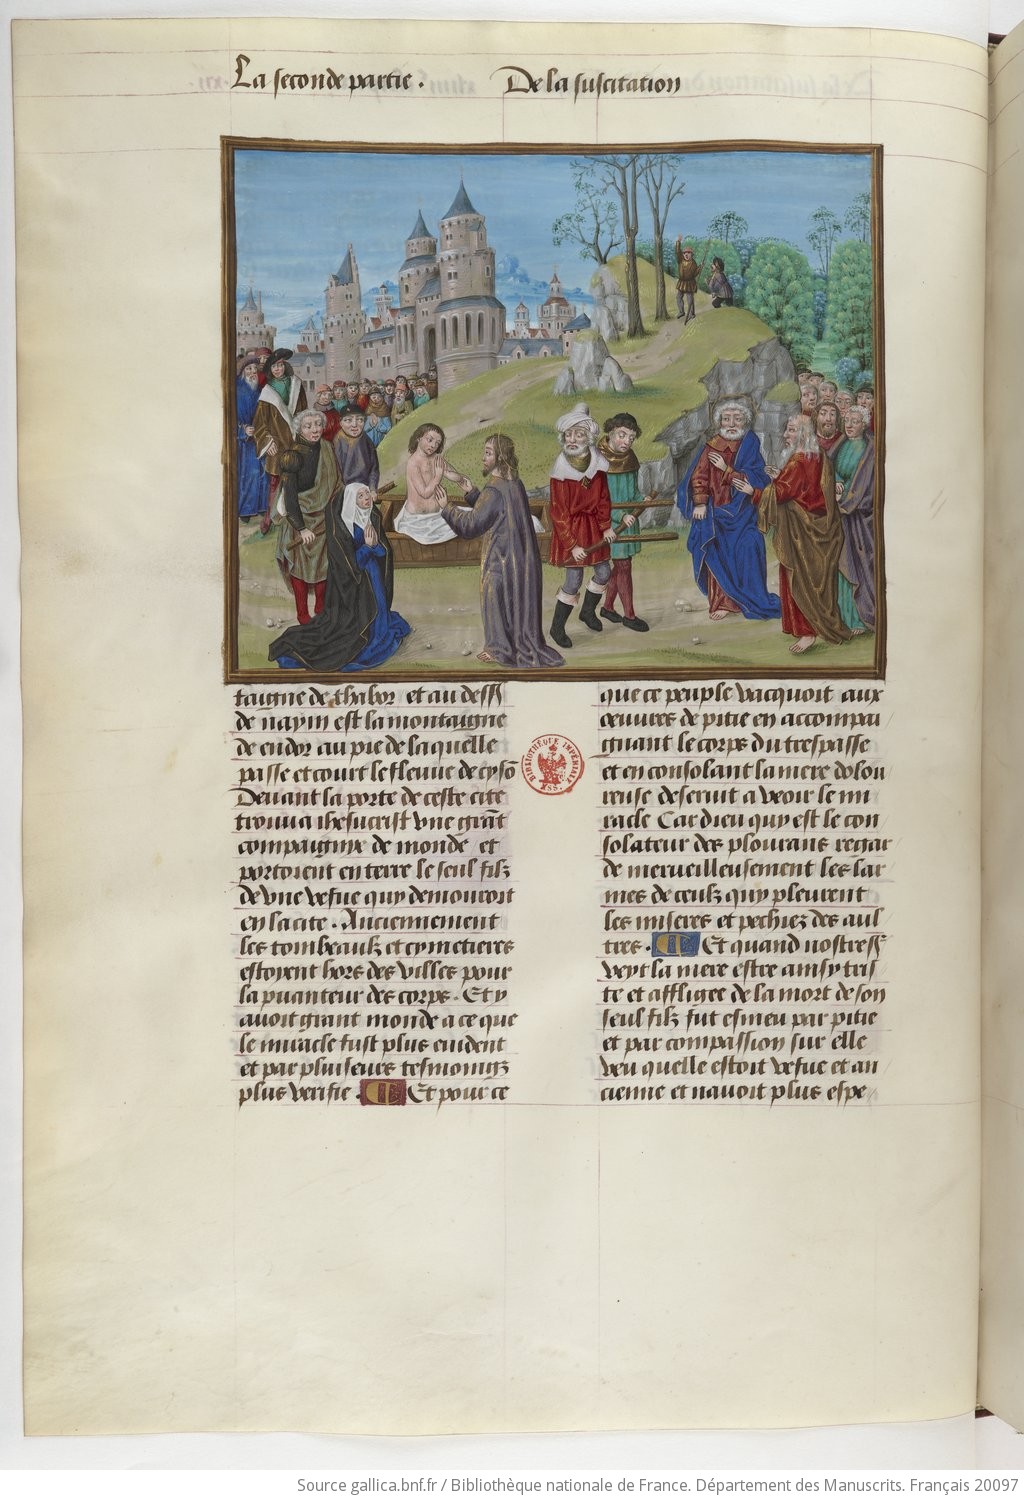 La seconde partie .
De la suscitation
taigne de thabor et au dess9
de naym est la montaigne
de endor au pie de laquelle
passe et court le fleuue de cysō
Deuant la porte de ceste cite
trouua ihesucrist vne grāt
compaignye de monde et
portoient en terre le seul filz
de vne vefue quy demouroit
en la cite . Anciennement
les tombeaulx et cymetieres
estoyent hors des villes pour
la puanteur des corps . Et y
auoit grant monde a ce que
le miracle fust plus euident
et par pluiseurs tesmoingz
plus verifie . Et pour ce
BIBLIOTHÈQUE IMPÉRIALE MSS.
que ce peuple vacquoit aux
oeuures de pitie en accompai
gnant le corps du trespasse
et en consolant la mere dolou
reuse deseruit a veoir le mi
racle Car dieu quy est le con
solateur des plourans regar
de merueilleusement les lar
mes de ceulx quy pleurent
les miseres et pechiez des aul
tres . Et quand nostress
veyt la mere estre ainsy tris
te et affligee de la mort de son
seul filz fut esmeu par pitie
et par compassion sur elle
veu quelle estoit vefue et an
cienne et nauoit plus espe
Source gallica.bnf.fr / Bibliothèque nationale de France. Département des Manuscrits. Français 20097